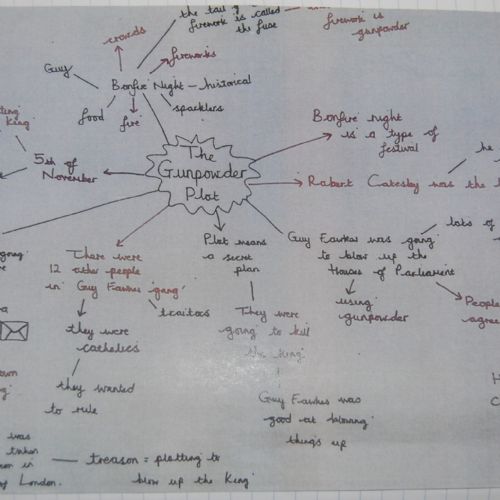 the tail of
firework is called
the fuse
firework is
gunpowder
crowds
fireworks
Guy
Bonfire Night - historical
food
fire
sparklers
King
5th of
November
The
Gunpowder
Plot
Bonfire night
is a type of
festival
he
Rabert Catesby was the
There were
12 other people
in Guy Fawkes 'gang'
traitors
they were
catholics
they wanted
to rule
Plot means
a secret
plan
They were
going to kill
the King
Guy Fawkes was
good at blowing
things up
Guy Fawkes was going
to blow up the
Houses of Parliament
lots of
using
gunpowder
People
agree
was
taken
in
London.
treason = plotting to
blow up the King